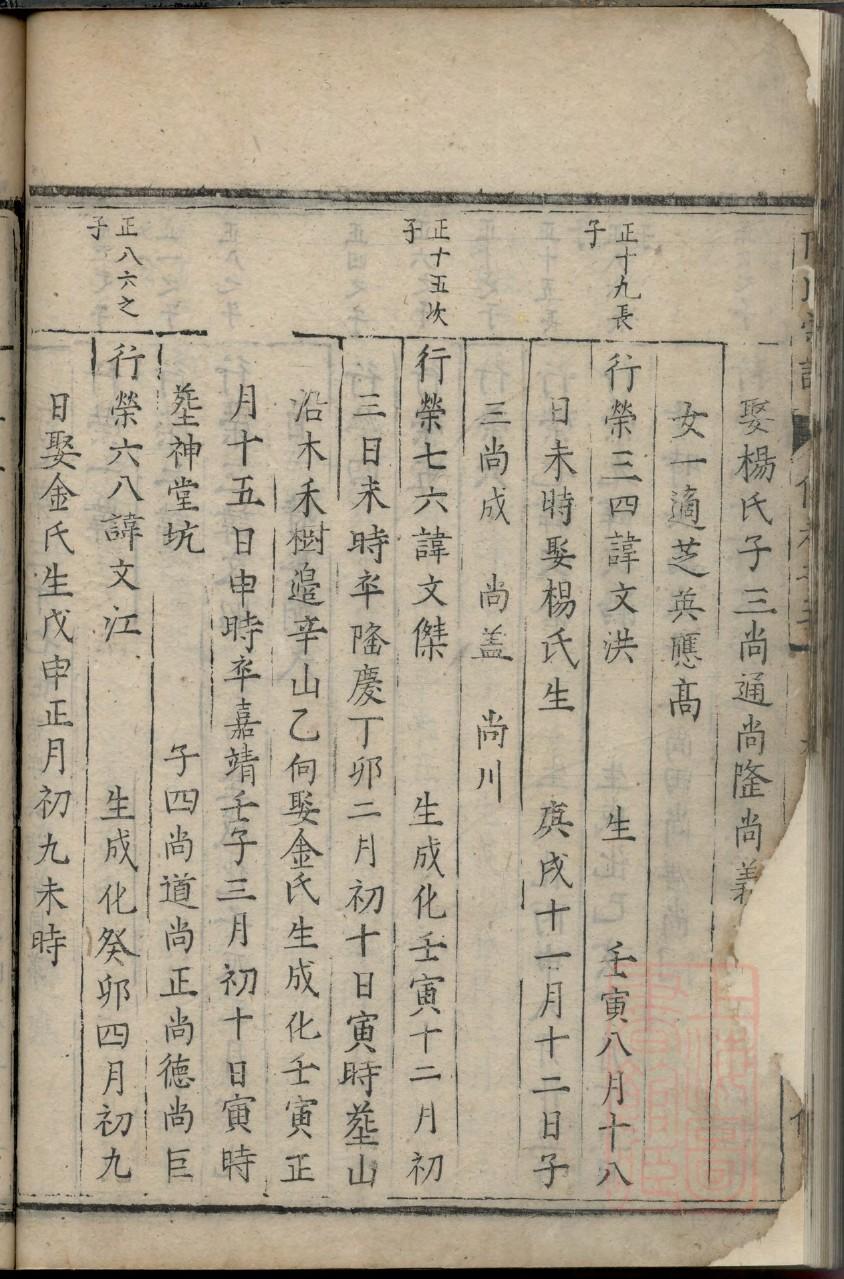 娶楊氏子三尚通尚隆尚義
女一適芝英應髙
正十九長子
行榮三四諱文洪 生 壬寅八月十八
日未時娶楊氏生 庚戌十一月十二日子
三尚成 尚盖 尚川
正十五次子
行榮七六諱文傑 生成化壬寅十二月初
三日未時卒隆慶丁卯二月初十日寅時塟山
沿木禾樹邉辛山乙向娶金氏生成化壬寅正
月十五日申時卒嘉靖壬子三月初十日寅時
塟神堂坑 子四尚道尚正尚德尚巨
正八六之子
行榮六八諱文江 生成化癸卯四月初九
日娶金氏生戊申正月初九未時